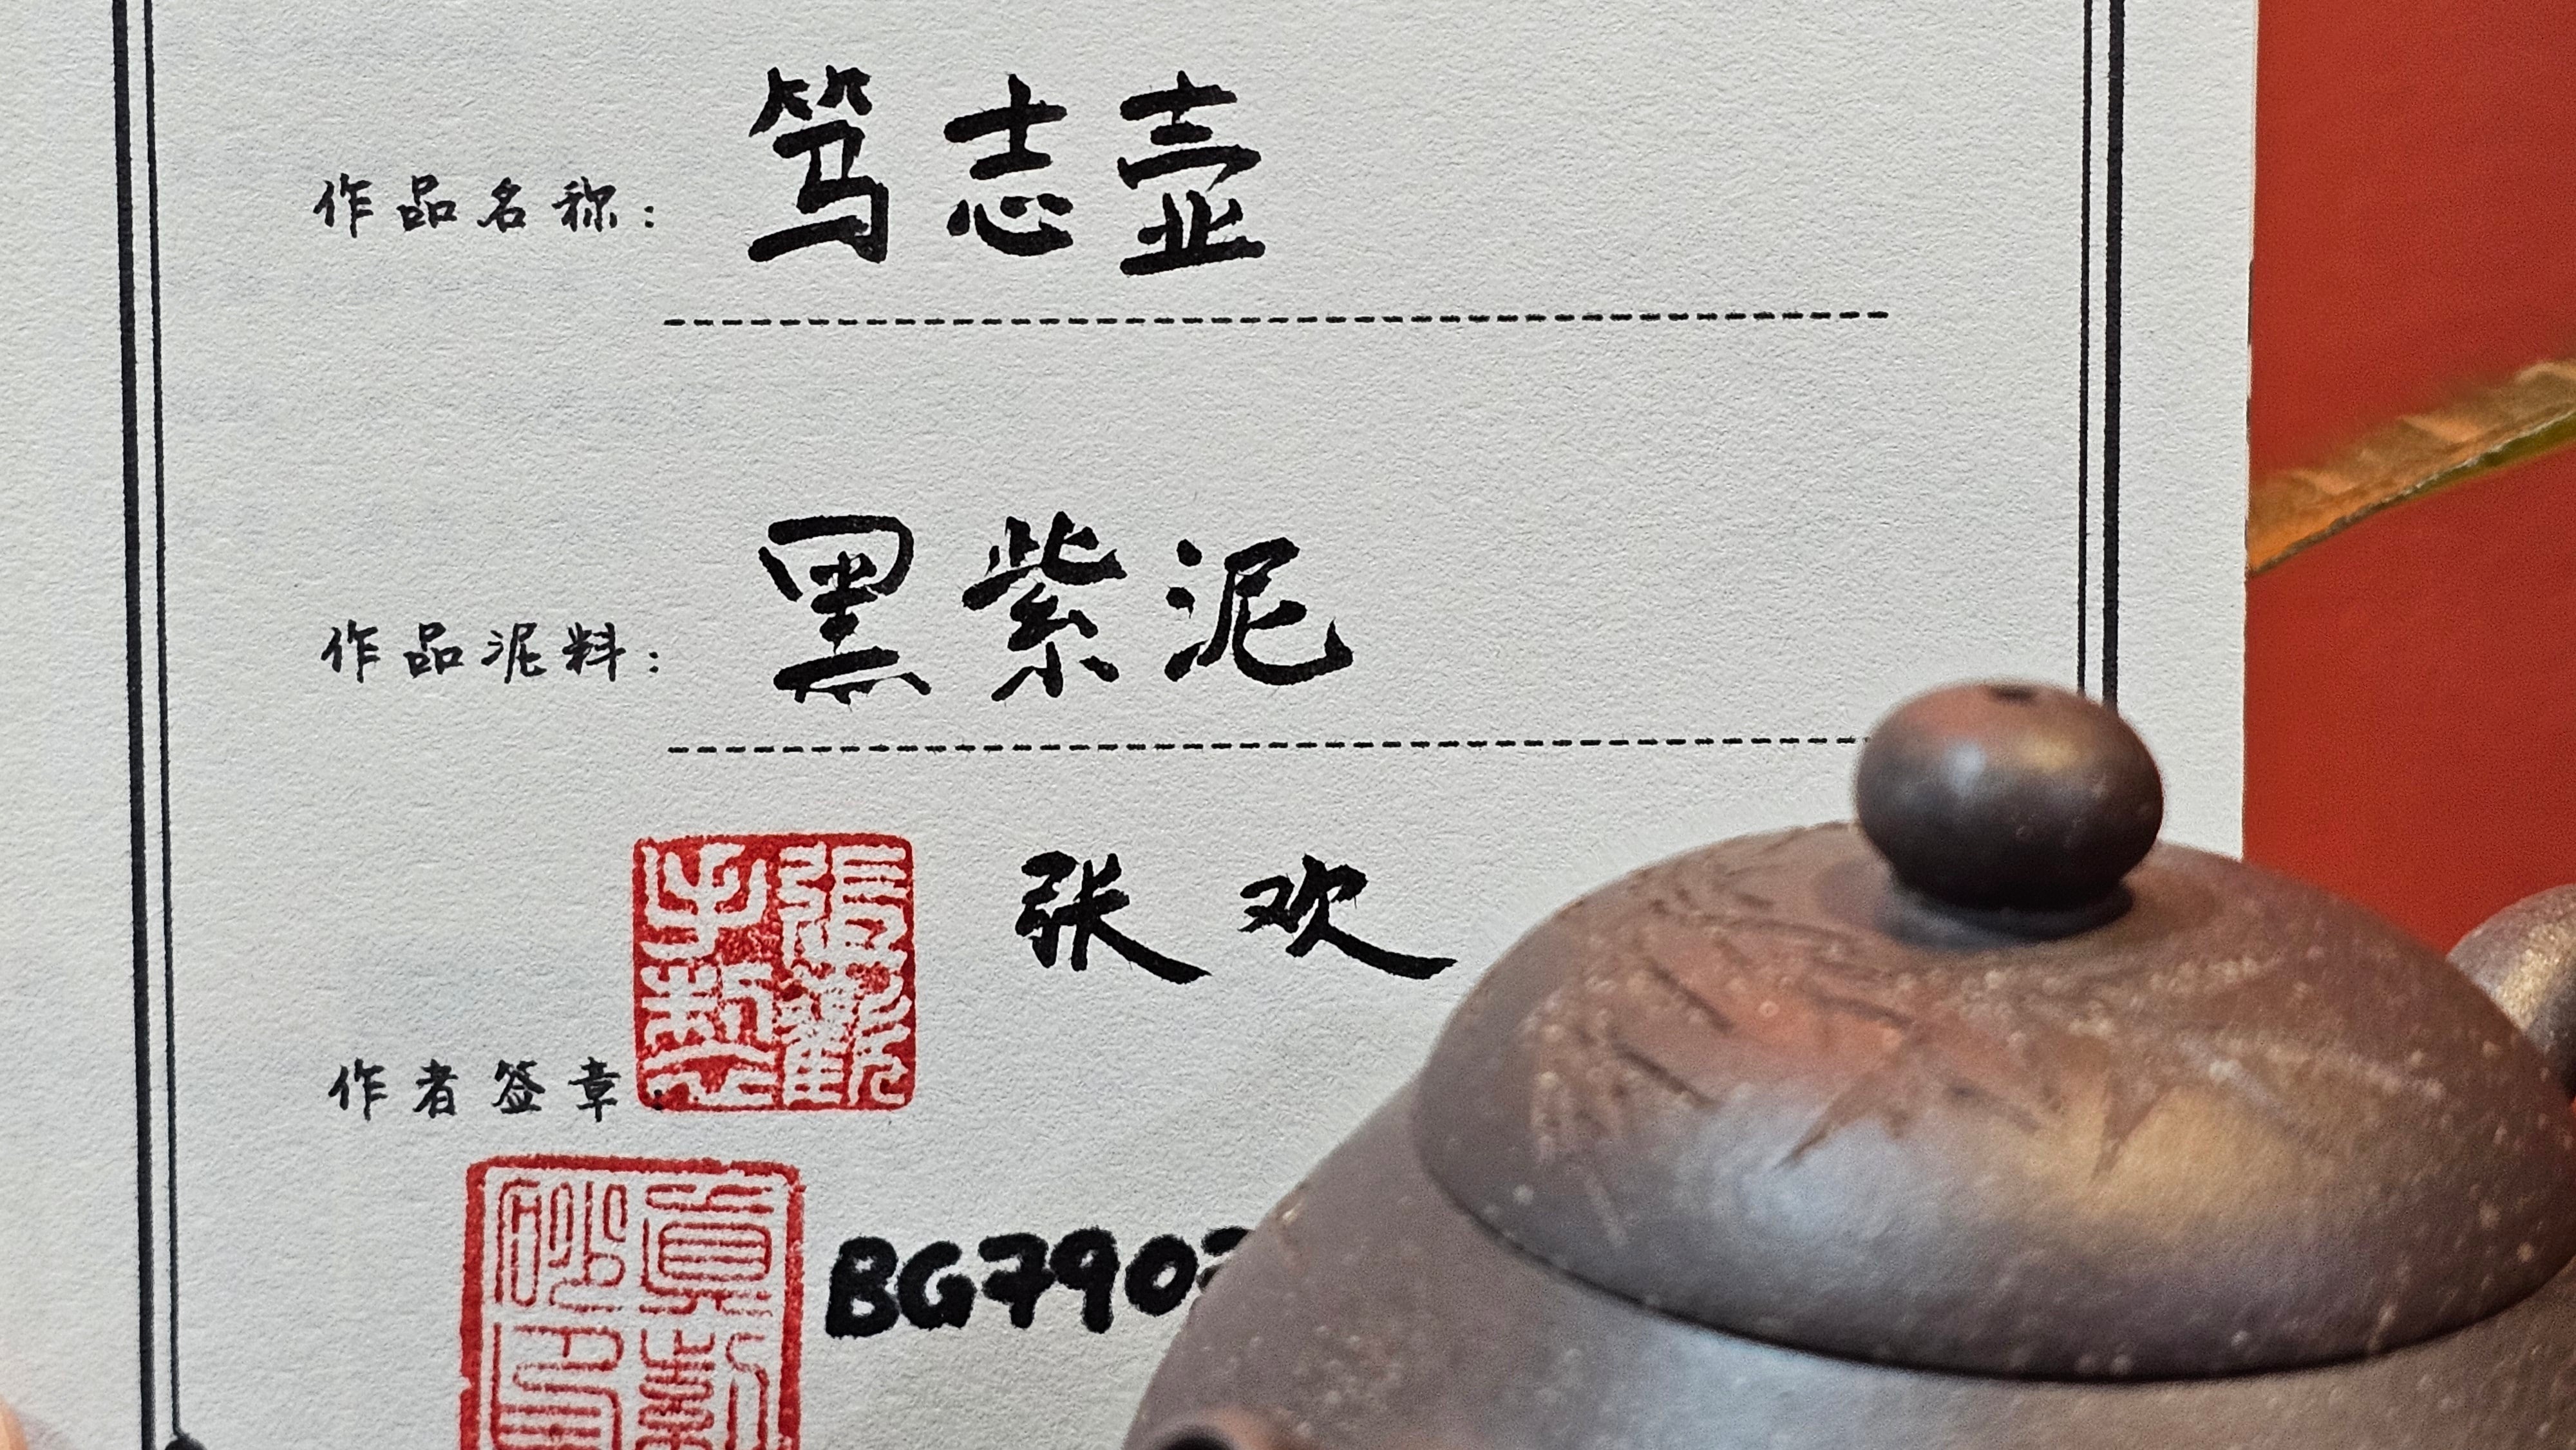 作品名称：笃志壶
作品泥料：黑紫泥
张欢
張歡手製
作者签章：
BG790